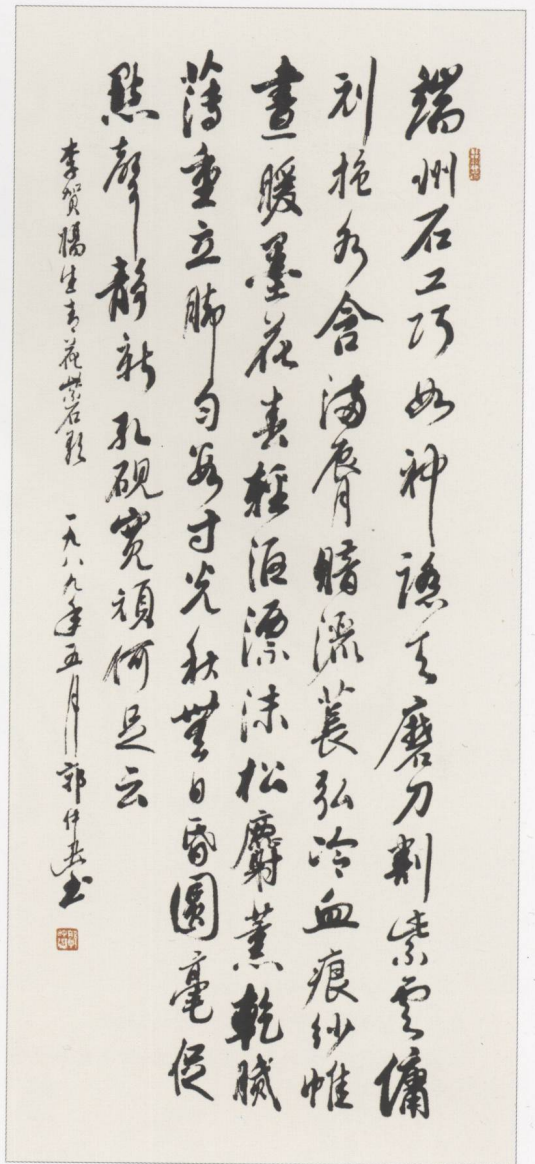 端州石工巧如神踏天磨刀割紫雲傭
刓抱水含滿脣暗灑萇弘冷血痕紗帷
晝暖墨花春輕漚漂沫松麝薰乾膩
薄重立脚匀數寸光秋無日昏圓毫促
點聲靜新孔硯寬頑何足云
李賀楊生青花紫石歌 一九八九年五月郭仲選書